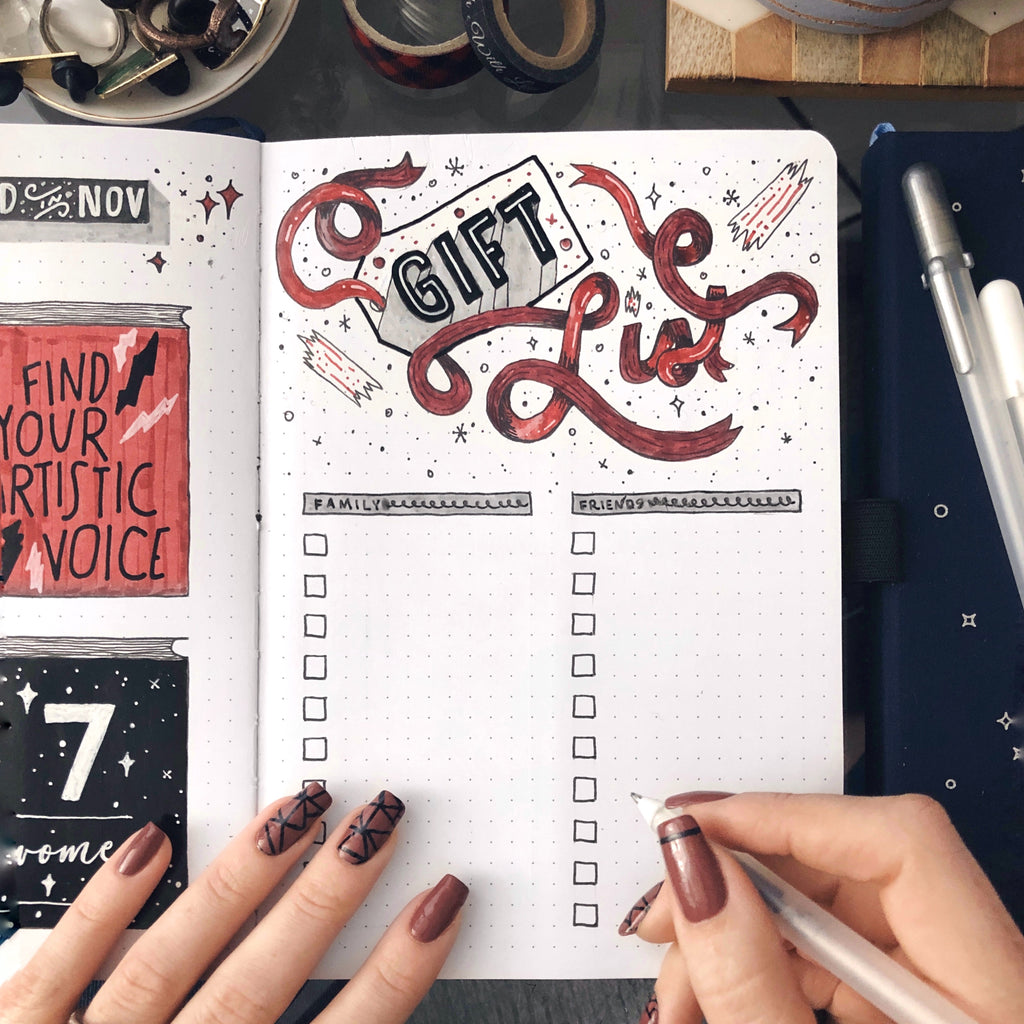 D in NOV
FIND
YOUR
ARTISTIC
VOICE
7
wome
GIFT
List
FAMILY
FRIENDS
With